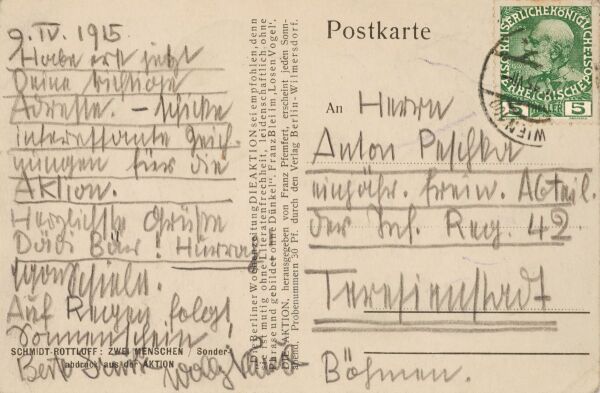 9. IV. 1915.
Habe erst jetzt
Deine richtige
Adresse. – Schicke
interessante Zeich-
nungen für die
Aktion.
Herzlichste Grüße
Hurrah
Egon Schiele.
Auf Regen folgt
Sonnenschein
SCHMIDT-ROTTLOFF: ZWEI MENSCHEN / Sonder-
abdruck aus der AKTION
Die Berliner Wochenzeitung DIE AKTION sei empfohlen, denn
sie ist mutig ohne Literatenfrechheit, leidenschaftlich ohne
Phrase und gebildet ohne Dünkel". Franz Blei im „Losen Vogel".
DIE AKTION, herausgegeben von Franz Pfemfert, erscheint jeden Sonn-
abend. Probenummern 30 Pf. durch den Verlag Berlin-Wilmersdorf.
Postkarte
KAISERLICHE KÖNIGLICHE
ÖSTERREICHISCHE
5 HELLER 5
WIEN
An Herrn
Anton Peschka
einjähr. freiw. Abteil.
der Inf. Reg. 42
Teresienstadt
Böhmen.